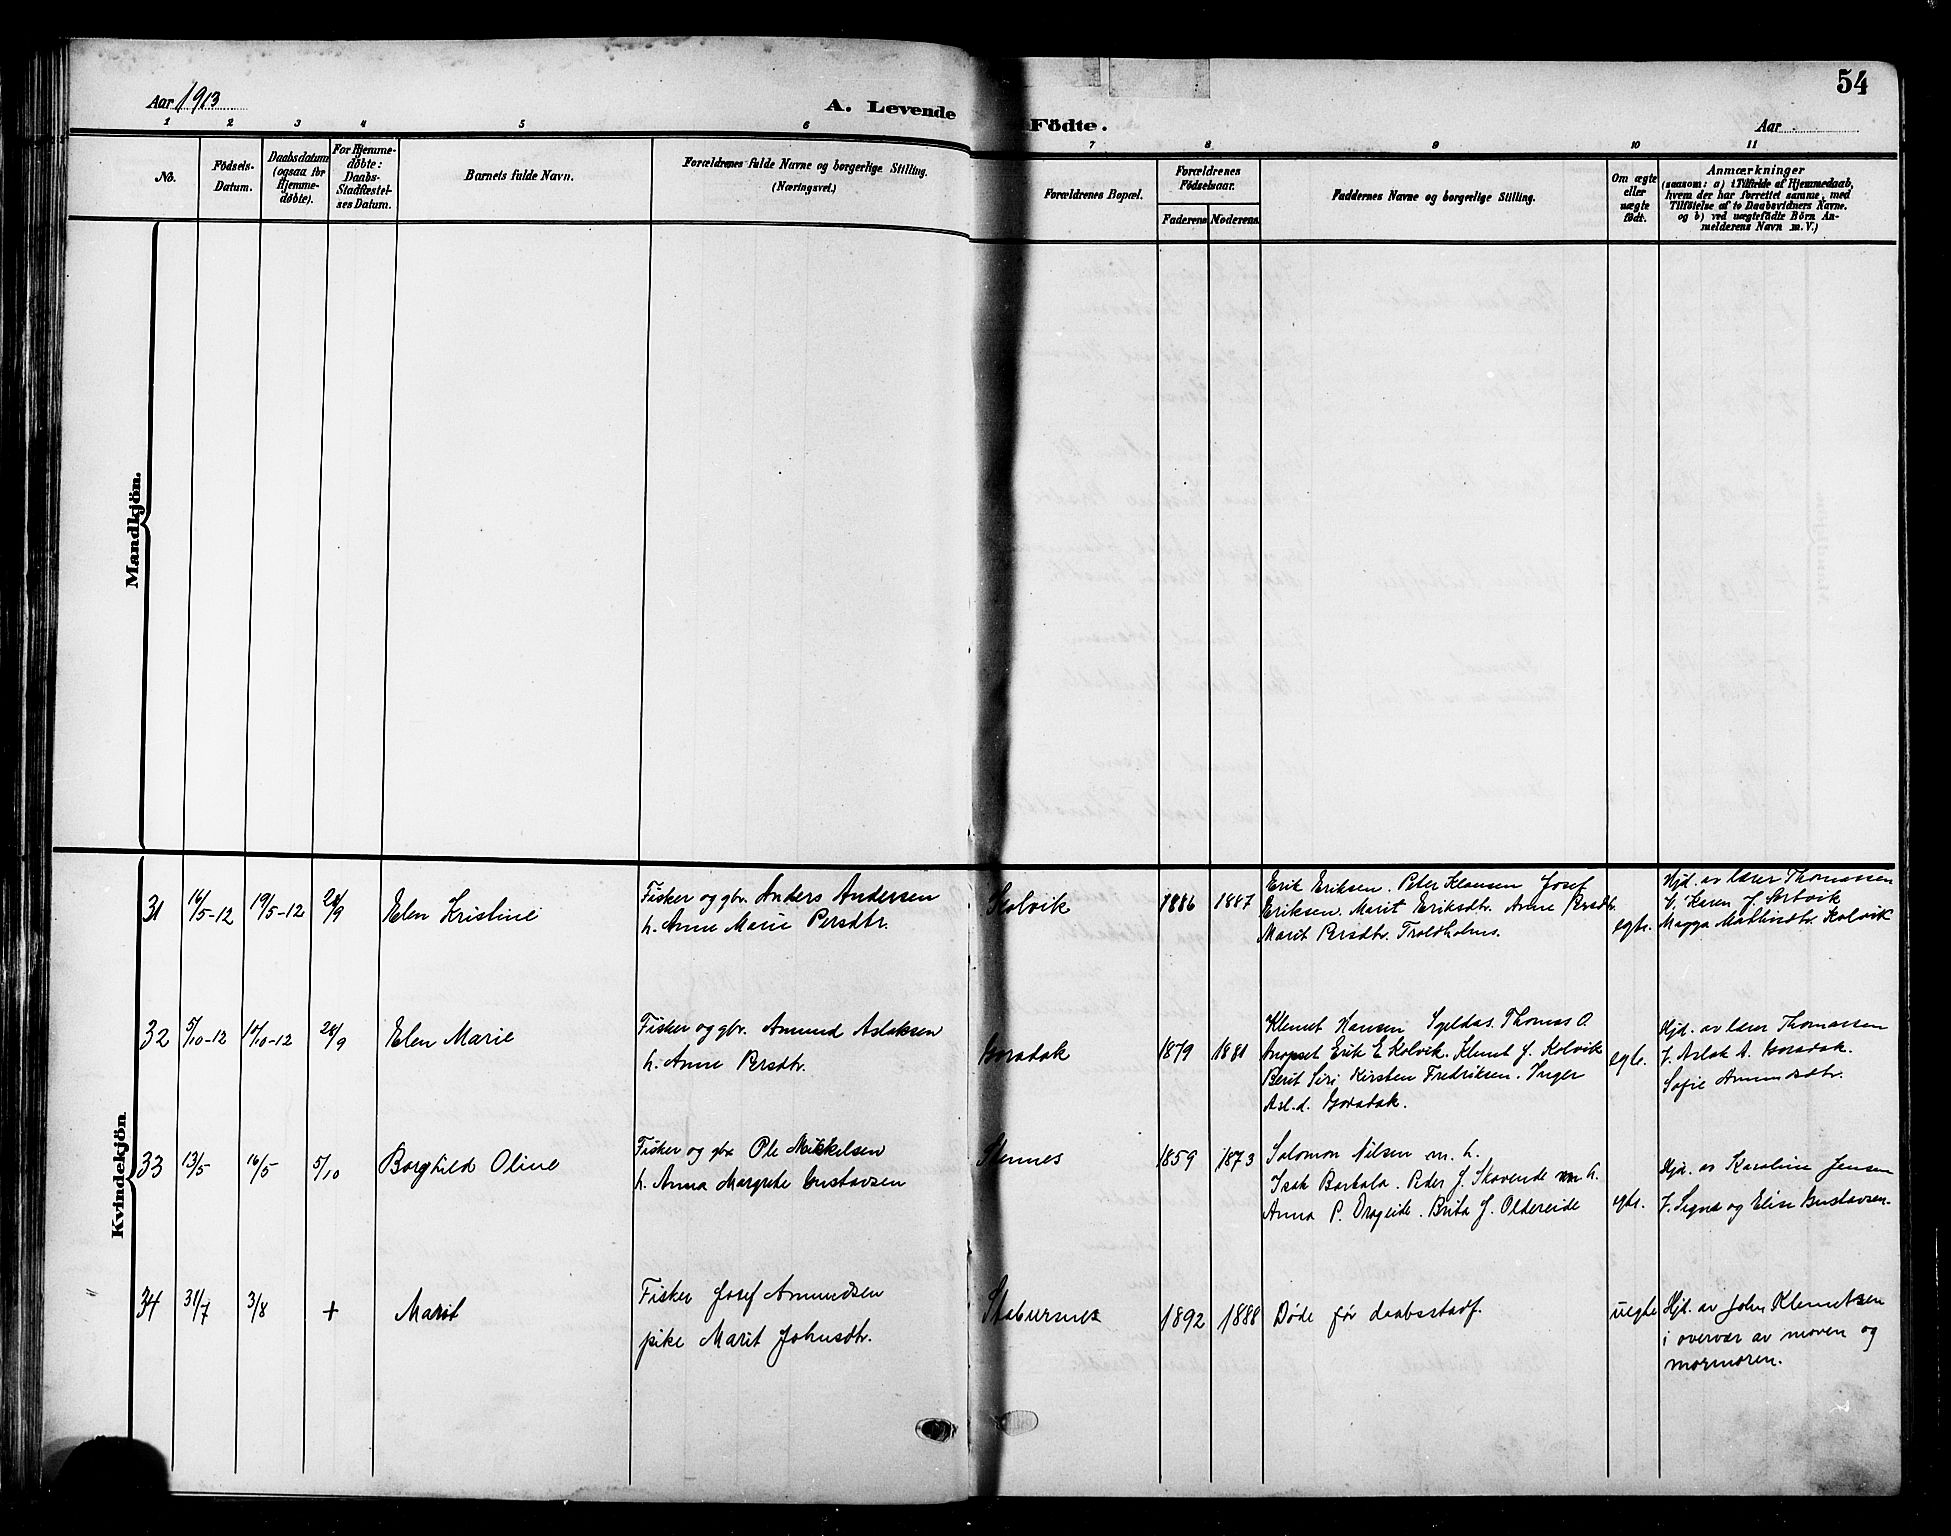 Aar 1913
A. Levende
Födte.
Aar
54
1 2 3 4 5 6 7 8 9 10 11
No.
Födsels-
Datum.
Daabsdatum
(ogsaa for
Hjemme-
døbte).
For Hjemme-
døbte:
Daabs-
Stadfæstel-
ses Datum.
Barnets fulde Navn.
Forældrenes fulde Navne og borgerlige Stilling.
(Næringsvei.)
Forældrenes Bopæl.
Forældrenes
Födselsaar.
Faderens Moderens
Faddernes Navne og borgerlige Stilling.
Om ægte
eller
uægte
født.
Anmærkninger
(saasom: a) i Tilfælde af Hjemmedaab,
hvem der har forrettet samme, med
Tilföielse af to Daabsvidners Navne.
og b) ved uægtefödte Börn An-
melderens Navn m. V.)
Mandkjön.
Kvindekjön
31 14/5-12 19/5-12 28/9 Elen Kristine
Fisker og gbr. Anders Andersen
h. Anne Marie Persdtr.
Kolvik 1886 1887
Erik Eriksen. Peter Klausen Josef
Eriksen. Marit Eriksdtr. Anne Persdtr.
Marit Persdtr. Troldholms.
egte.
Hjd. av lærer Thomassen
V. Karen J.
Magga Mathisdtr. Kolvik
32 5/10-12 10/10-12 28/9 Elen Marie
Fisker og gbr. Amund Aslaksen
h. Anne Persdtr.
Goradak 1879 1881
Klemet Hansen Igeldas. Thomas O.
Anopset Erik E Kolvik. Klemet J. Kolvik
Berit Siri Kirsten Fredriksen. Inger
Asl.d. Goradak.
egte.
Hjd. av lærer Thomassen
V. Aslak A. Goradak.
Sofie Amundsdtr.
33 13/5 16/5 5/10 Borghild Oline
Fisker og gbr Ole Mikkelsen
h. Anna Margrete Gustavsen
Stennes 1859 1873
Salomon Nilsen m. h.
Isak Barkala. Peder J. Skovende m h.
Anna P. Oldereide. Brita J. Oldereide
egte.
Hjd. av Karoline Jensen
V. Signe og Elise Gustavsen.
34 31/7 3/8 + Marit
Fisker Josef Amundsen
pike Marit Johnsdtr.
Stabursnes 1892 1888
Døde før daabsstadf.
uegte
Hjd. av John Klemetsen
i overvær av moren og
mormoren.